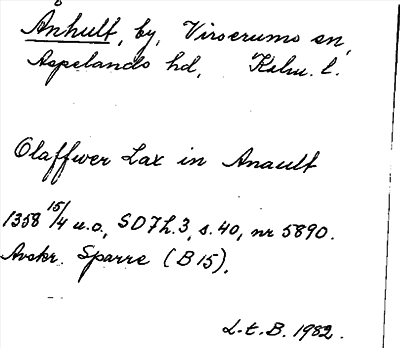 Ånhult, by, Virserums sn,
Aspelands hd, Kalm. l.
Olaffwer Lax in Anault
1358 15/4 u.o., SD7h.3, s.40, nr 5890.
Avskr. Sparre (B 15).
L.t.B. 1982.